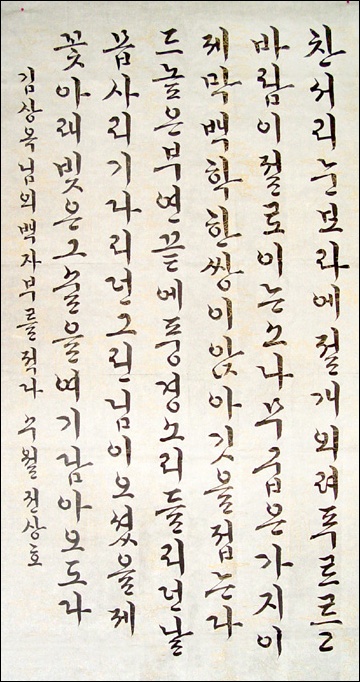 찬서리눈보라에절개외려푸르르고
바람이절로이는소나무굽은가지이
제막백학한쌍이앉아깃을접는다
드높은부연끝에풍경소리들리던날
몹사리기다리던그린님이오셨을제
꽃아래빚은그술을여기담아오도다
김상옥님의 백자부를적다 수월 전상호